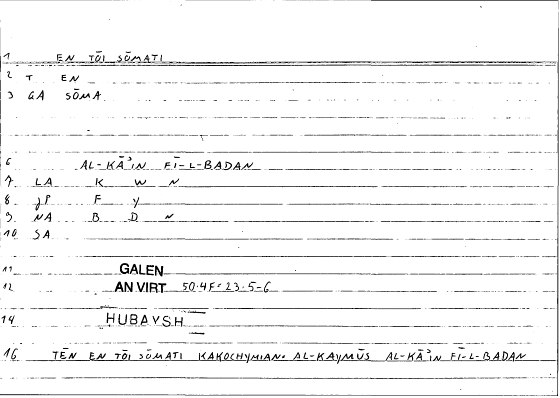 1 EN TŌI SŌMATI
2 T EN
3 GA SŌMA
6 AL-KĀʾIN FĪ-L-BADAN
7 LA K W N
8 JP F Y
9 NA B D N
10 SA
11 GALEN
12 AN VIRT 50.4F=23.5-6
14 HUBAYSH
16 TĒN EN TŌI SŌMATI KAKOCHYMIAN. AL-KAYMŪS AL-KĀʾIN FĪ-L-BADAN